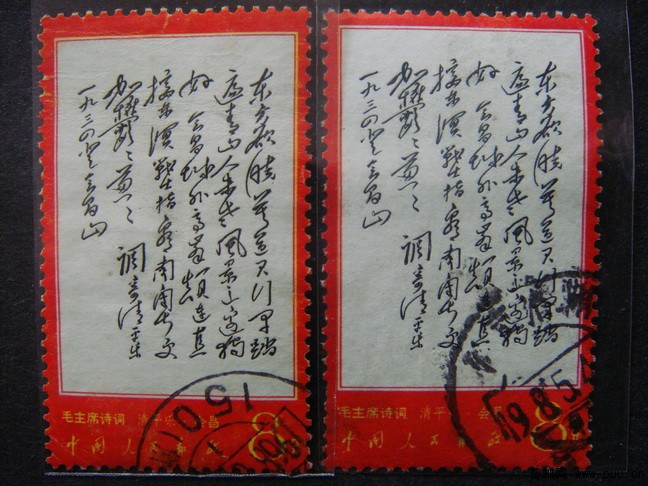 东方欲晓莫道君行早踏
遍青山人未老风景这边独
好 会昌城外高峰颠连直
接东溟战士指看南粤更
加鬱々葱々
一九三四登会昌山
调寄清平乐
毛主席诗词 清平乐 会昌
中国人民邮政 8
1501
东方欲晓莫道君行早踏
遍青山人未老风景这边独
好 会昌城外高峰颠连直
接东溟战士指看南粤更
加鬱々葱々
一九三四登会昌山
调寄清平乐
毛主席诗词 清平 会昌
中国人民邮政 8
19.8.5